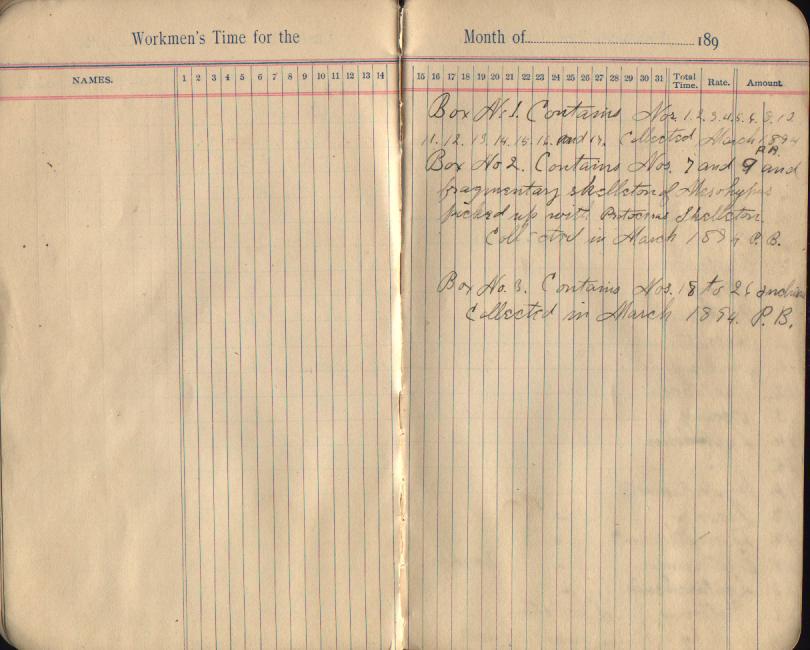 Workmen's Time for the
Month of 189
NAMES. 1 2 3 4 5 6 7 8 9 10 11 12 13 14
15 16 17 18 19 20 21 22 23 24 25 26 27 28 29 30 31 Total Time. Rate. Amount.
Box No 1. Contains Nos. 1. 2. 3. 4. 5. 6. 12
11. 12. 13. 14. 15. 16. and 17. Collected March 1894
Box No 2. Contains Nos. 7 and 9 and
fragmentary skelleton of Mesohyppus
picked up with Protoceras Skelleton.
Collected in March 1894 P. B.
Box No. 3. Contains Nos. 18 to 26
Collected in March 1894. P. B.